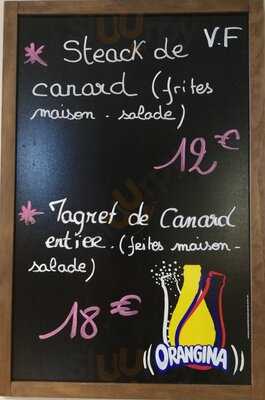 V.F
* Steack de
canard (frites
maison - salade)
12€
* Magret de Canard
entier. (frites maison -
salade)
18€
ORANGINA